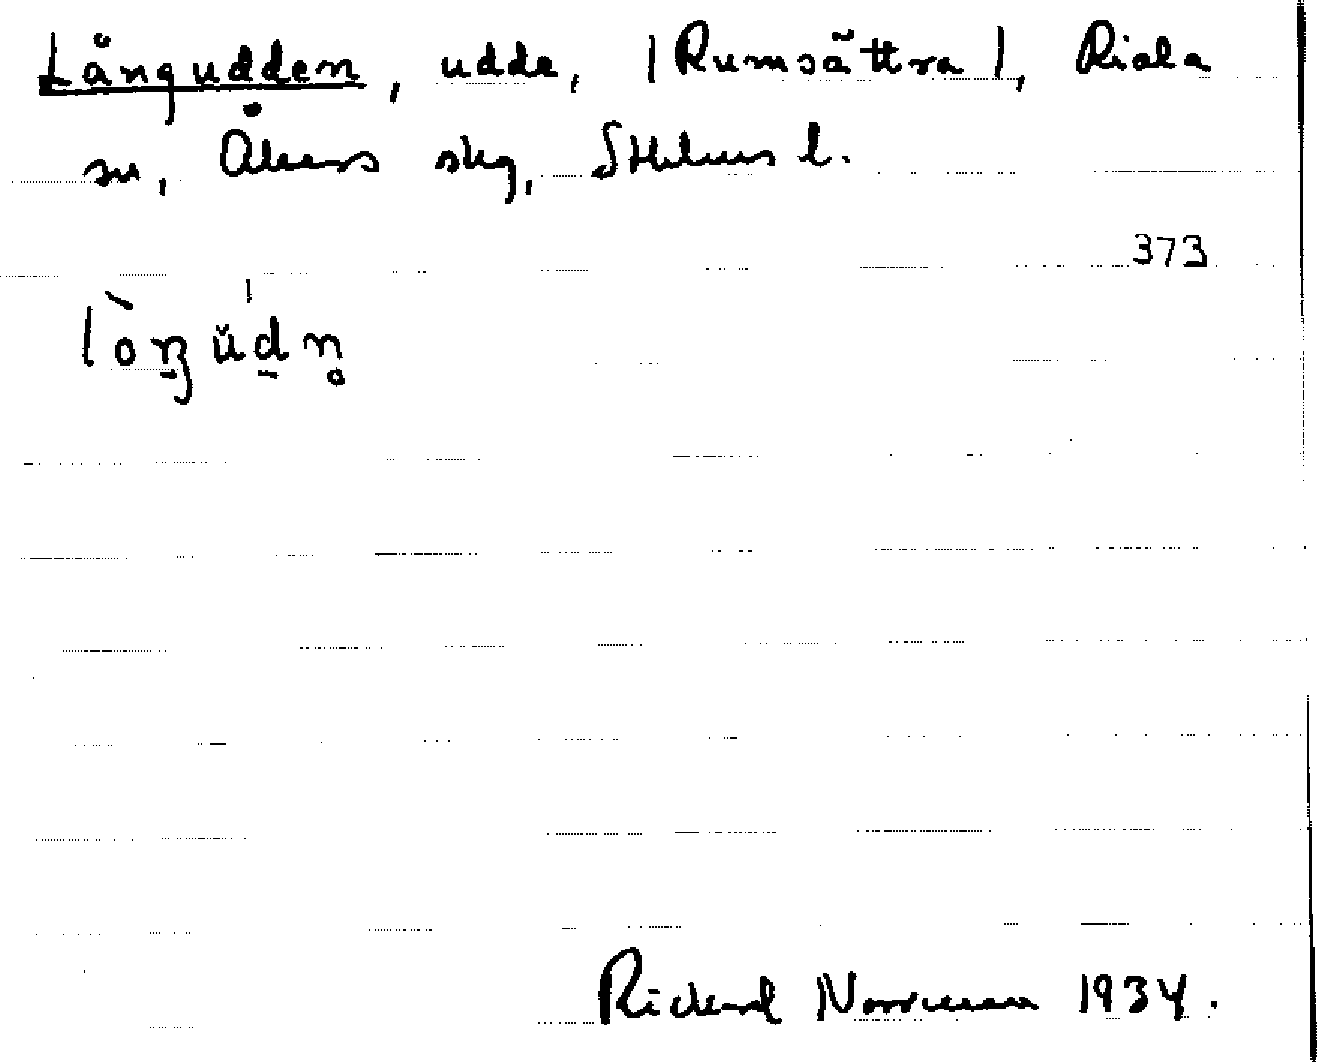 Långudden, udde, |Rumsättra|, Riala
sn, Åkers skg, Sthlms l.
373
lòŋŭdn̥
Rickard Norrman 1934.